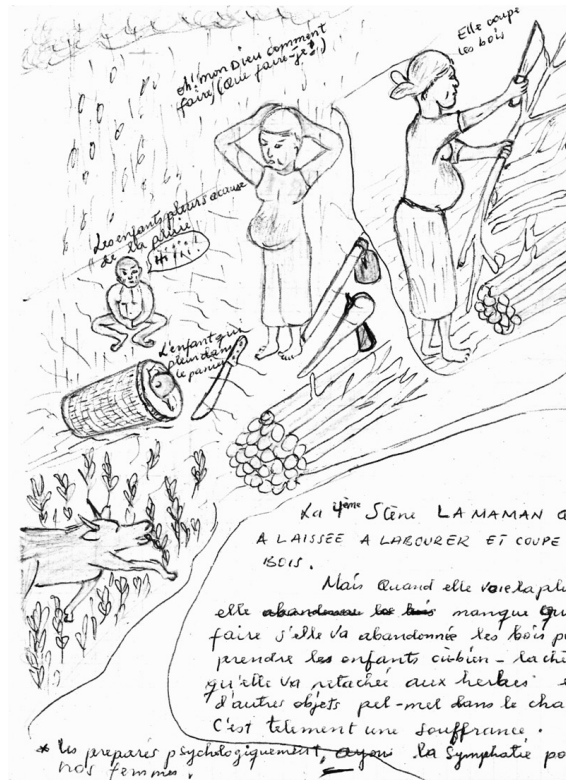 Elle coupe
les bois
Oh! mon Dieu comment
faire, (que faire-je?)
Les enfants pleurs acause
de la pluie
Hi i i i !
Hi i i !
L'enfant qui
pleur dans
le panier
La 4ème Stène LA MAMAN
A LAISSÉE A LABOURER ET COUPE
BOIS.
Mais Quand elle voie la
elle abandonne les bois manque
faire s'elle va abandonnée les bois
prendre les enfants
qu'elle va retachée aux herbes
d'autres objets pel-mel dans le
C'est telement une souffrance.
* les preparés psychologiquement, la Symphatie
nos femmes.